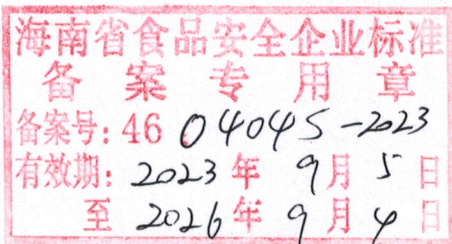 海南省食品安全企业标准
备案专用章
备案号: 46 04045-2023
有效期: 2023年 9月 5日
至 2026年 9月 4日